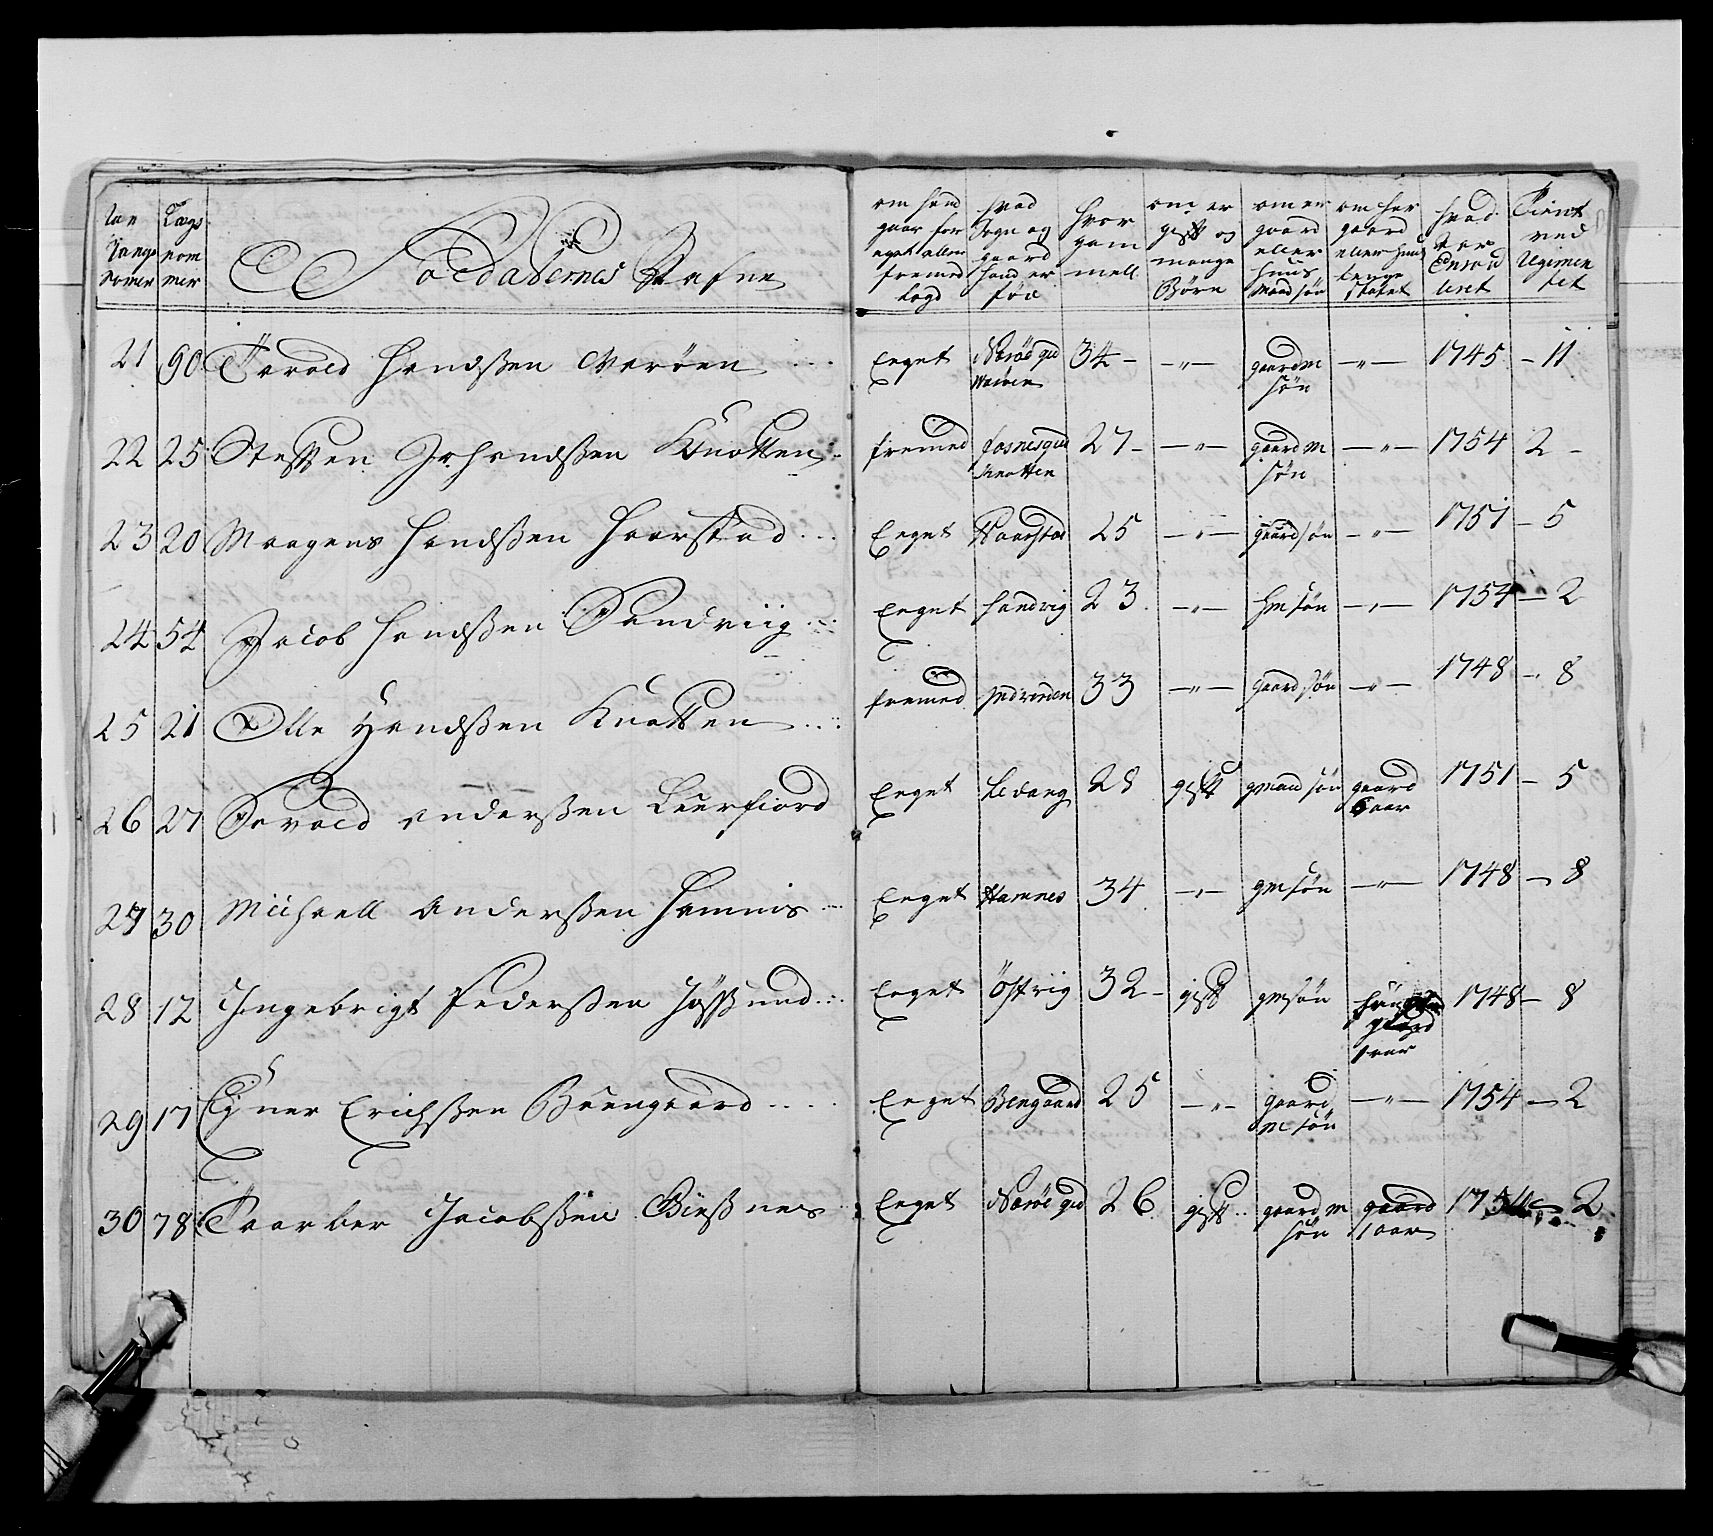 Rangs nomer | Lægs nom mer | Soldaternes Nafne | om hand gaar for eget eller fremed lægd | hvad Sogn og gaard hand er fød | hvor gam mell | om er gift og mange Børn | om er gaard eller huus mand søn | om har gaard eller huus lenge | hvad aar | Tient ved Regimen tet
21 90 Harold Handsßen Warøen Eeget Nærøe gield Warøen 34 – „ – gaardm søn – „ – 1745 – 11
22 25 Steffen Johandsßen Knotten fremed fosnesgield Knotten 27 – – „ – gaard m søn – „ – 1754 2 –
23 20 Maagens Handsßen Haarstad Eeget Haarstad 25 – „ – gaard søn – „ – 1751 – 5
24 54 Jacob Handsßen Sandviig Eeget Sandvig 23 – „ – hm søn – „ – 1754 – 2
25 21 Olle Handsßen Knotten fremed 33 – „ – gaard søn – „ – 1748 – 8
26 27 Andersßen Leerfiord Eeget Levang 28 gift gmand søn gaard 6 aar 1751 – 5
27 30 Michaell Andersßen Hamnis Eeget Hamnes 34 – „ – gm søn – „ – 1748 – 8
28 12 Ingebrigt Pedersßen Jøssund Eeget Østvig 32 – gift gm søn gaard 1 aar 1748 – 8
29 17 Eyner Erichsßen Beengaard Eeget Bengaard 25 – „ – gaard m søn – „ – 1754 – 2
30 78 Taarber Jacobsßen Eeget Nærøe gield 26 gift gaard m søn gaard 1 aar 1754 – 2